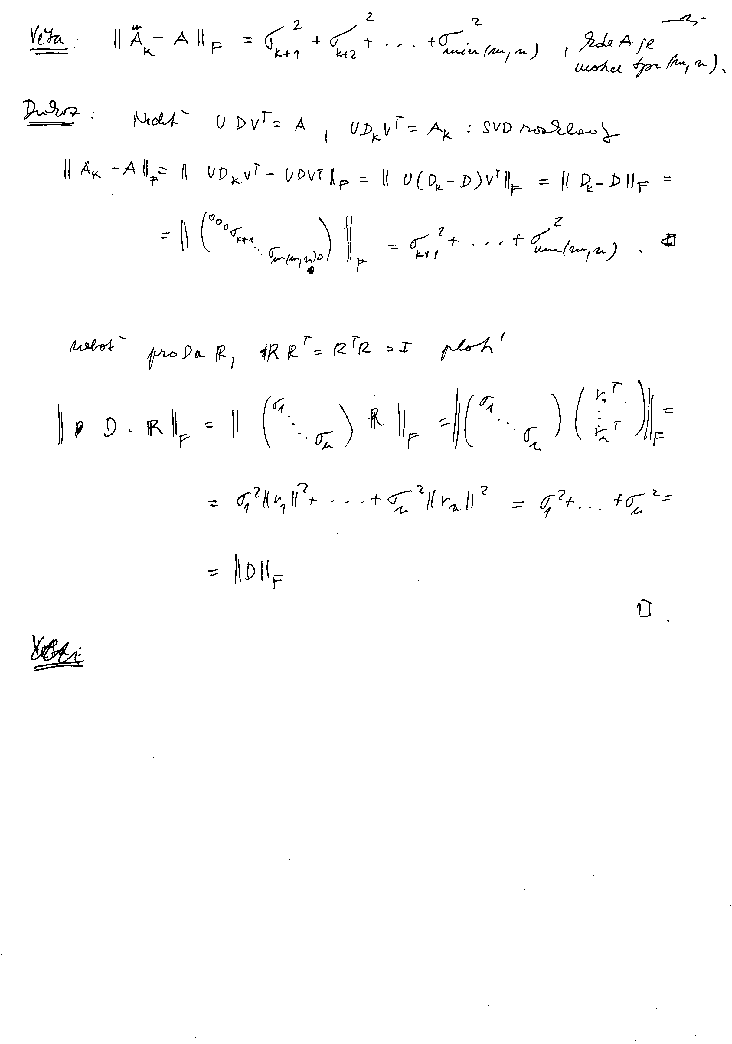 -2-
Věta: ‖A_k − A‖_F = σ_{k+1}² + σ_{k+2}² + ... + σ_{min(m,n)}², kde A je
matice typu (m,n).
Důkaz: Nechť UDVᵀ = A, UD_kVᵀ = A_k : SVD rozklady
‖A_k − A‖_F = ‖UD_kVᵀ − UDVᵀ‖_F = ‖U(D_k − D)Vᵀ‖_F = ‖D_k − D‖_F =
= ‖(000σ_{k+1} ⋱ σ_{min(m,n)} 0)‖_F = σ_{k+1}² + ... + σ_{min(m,n)}². □
neboť pro D a R, RRᵀ = RᵀR = I platí
‖D · R‖_F = ‖(σ₁ ⋱ σ_n) R‖_F = ‖(σ₁ ⋱ σ_n)(r₁ᵀ ⋮ r_nᵀ)‖_F =
= σ₁²‖r₁‖² + ... + σ_n²‖r_n‖² = σ₁² + ... + σ_n² =
= ‖D‖_F
□.